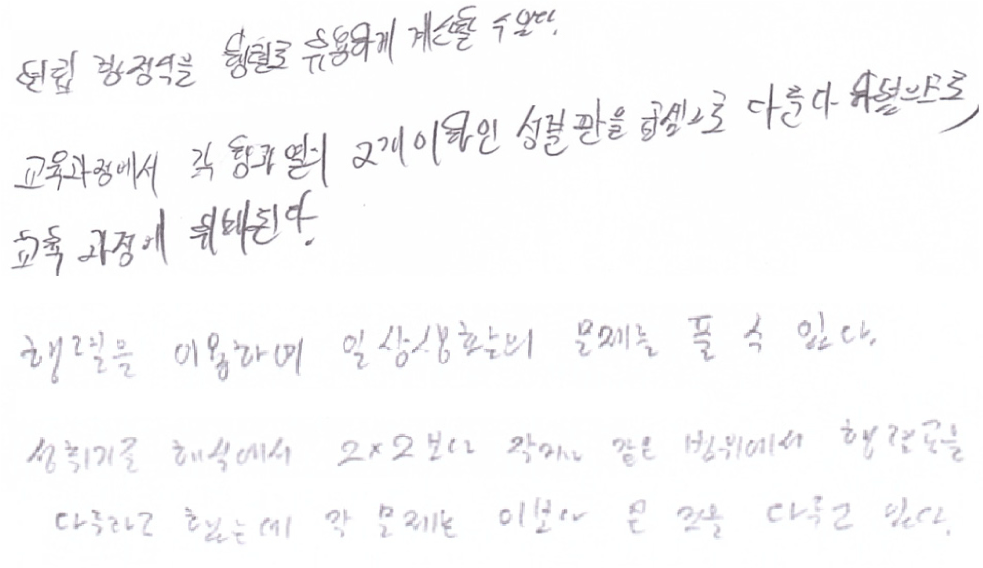 연립 방정식을 행렬로 유용하게 계산할 수 있다.
교육과정에서 각 행과 열의 2개 이하인 행렬 만을 곱셈으로 다룬다 하였으므로,
교육 과정에 위배된다.
행렬을 이용하여 일상생활의 문제를 풀 수 있다.
성취기준 해석에서 2×2 보다 작거나 같은 범위에서 행렬곱을
다루라고 했는데 각 문제는 이보다 큰 것을 다루고 있다.